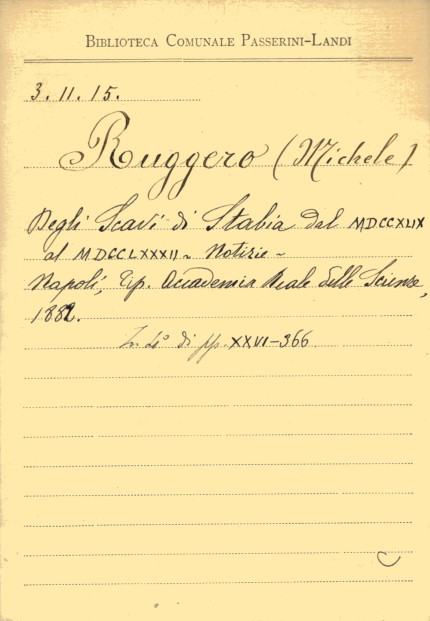 BIBLIOTECA COMUNALE PASSERINI-LANDI
3. 11. 15.
Ruggero (Michele)
Degli Scavi di Stabia dal MDCCXLIX
al MDCCLXXXII - Notizie -
Napoli, Tip. Accademia Reale delle Scienze,
1882.
In 4° di pp. XXVI-366